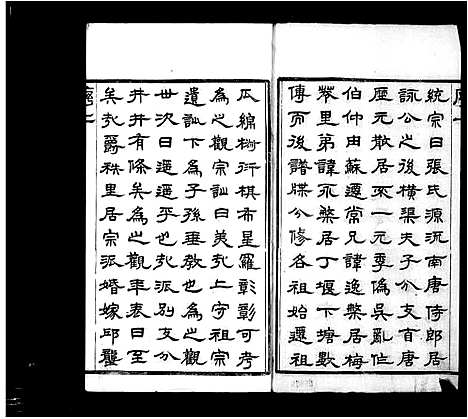 統宗曰張氏源流南唐侍郎居
詠公之後橫渠夫子分支自唐
厔元散居不一元季偽吳亂作
伯仲由蘇遷常兄諱逸槩居梅
里弟諱亦槩居丁堰下塘數
傳而後譜牒公修各祖始遷祖
瓜綿椒衍棋布星羅彰彰可考
為之觀宗訓曰美哉上守祖宗
遺訓下為子孫垂教也為之觀
世次曰遞遞乎也派別支分
井井有條矣為之觀年表曰至
矣哉爵秩里居宗派婚嫁邱壟